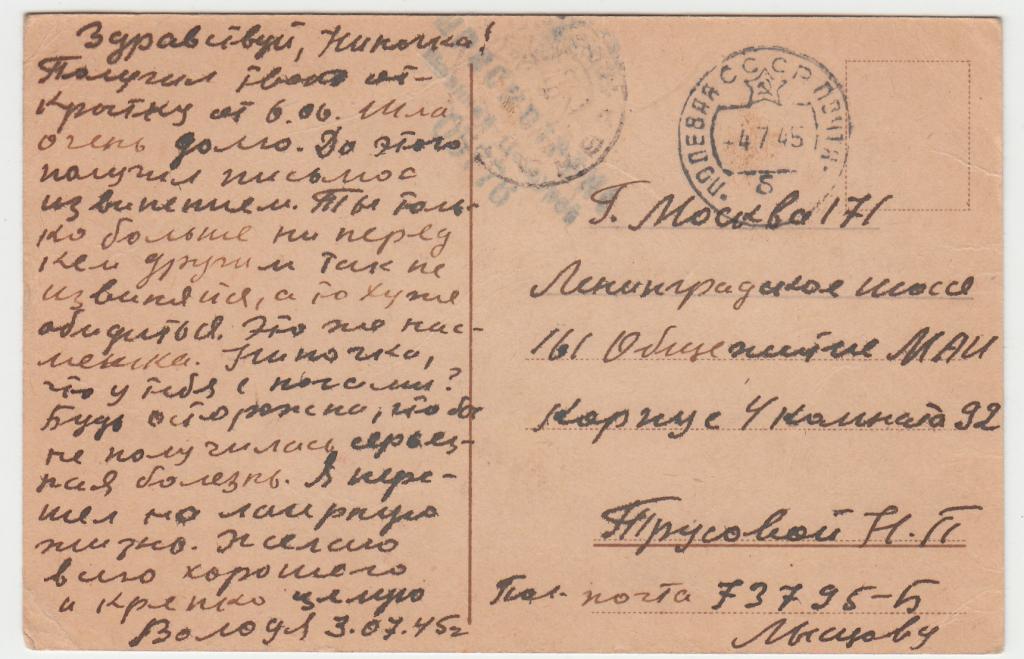 Здравствуй, Ниночка!
Получил твою от-
крытку от 6.06. Шла
очень долго. До этого
получил письмо с
извинением. Ты толь-
ко больше ни перед
кем другим так не
извиняйся, а то хуже
обидиться. Это же нас-
мешка. Ниночка,
что у тебя с ногами?
Будь осторожна, чтобы
не получилась серьез-
ная болезнь. Я пере-
шел на лагерную
жизнь. Желаю
всего хорошего
и крепко целую
Володя 3.07.45г
ПОЛЕВАЯ СССР ПОЧТА
4 7 45
б
Г. Москва 171
Ленинградское шоссе
161 Общежитие МАИ
Корпус 4 комната 92
Трусовой Н.П
Пол. почта 73795-Б
Мысцову